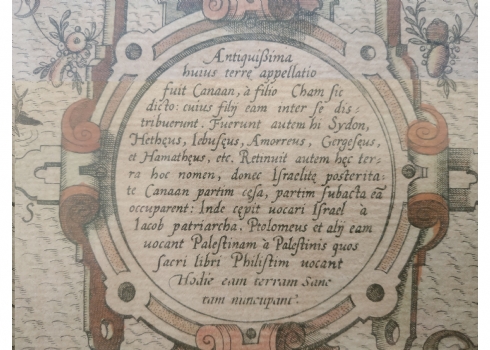 Antiquißima
huius terrę appellatio
fuit Canaan, à filio Cham sic
dicto: cuius filij eam inter se dis-
tribuerunt. Fuerunt autem hi Sydon,
Hethęus, Iebusęus, Amorreus, Gergesęus,
et Hamathęus, etc. Retinuit autem hęc ter-
ra hoc nomen, donec Israelitę posterita-
te Canaan partim cęsa, partim subacta eā
occuparent: Inde cępit vocari Israel à
Iacob patriarcha. Ptolomeus et alij eam
vocant Palestinam à Palestinis quos
sacri libri Philistim vocant
Hodie eam terram Sanc
tam nuncupant.
S